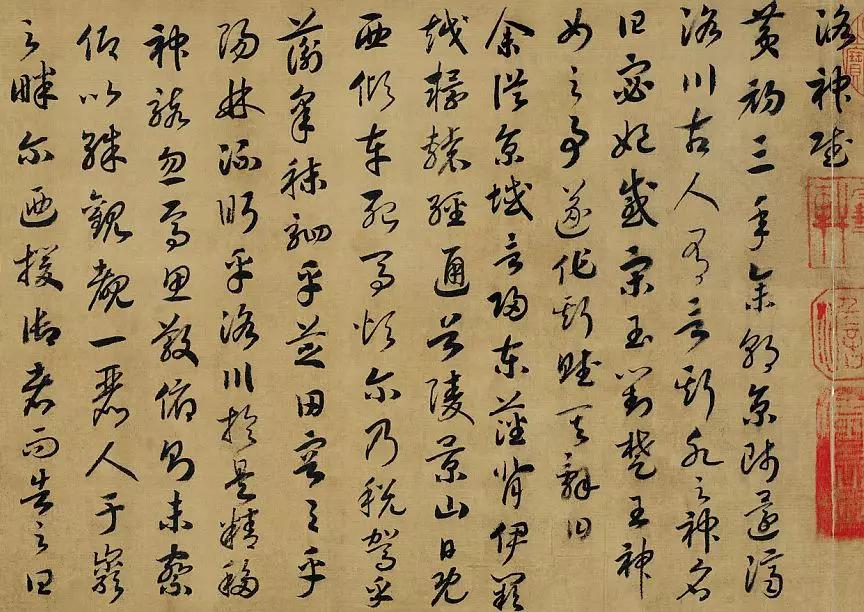 洛神賦
黃初三年余朝京師還濟
洛川古人有言斯水之神名
曰宓妃感宋玉對楚王神
女之事遂作斯賦其辭曰
余從京城言歸東藩背伊闕
越轘轅經通谷陵景山日既
西傾車殆馬煩爾乃稅駕乎
蘅皋秣駟乎芝田容與乎
陽林流眄乎洛川於是精移
神駭忽焉思散俯則未察
仰以殊觀覩一麗人于巖
之畔爾迺援御者而告之曰